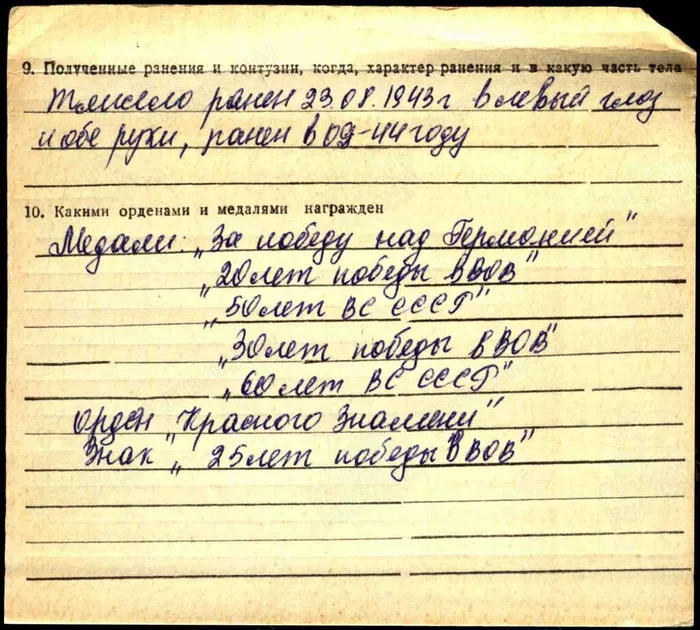 9. Полученные ранения и контузии, когда, характер ранения и в какую часть тела
Тяжело ранен 23.08.1943г в левый глаз
и обе руки, ранен в 09-44 году
10. Какими орденами и медалями награжден
Медали: „За победу над Германией"
„20лет победы в ВОВ"
„50лет ВС СССР"
„30лет победы в ВОВ"
„60лет ВС СССР"
орден „Красного Знамени"
Знак „25лет победы в ВОВ"